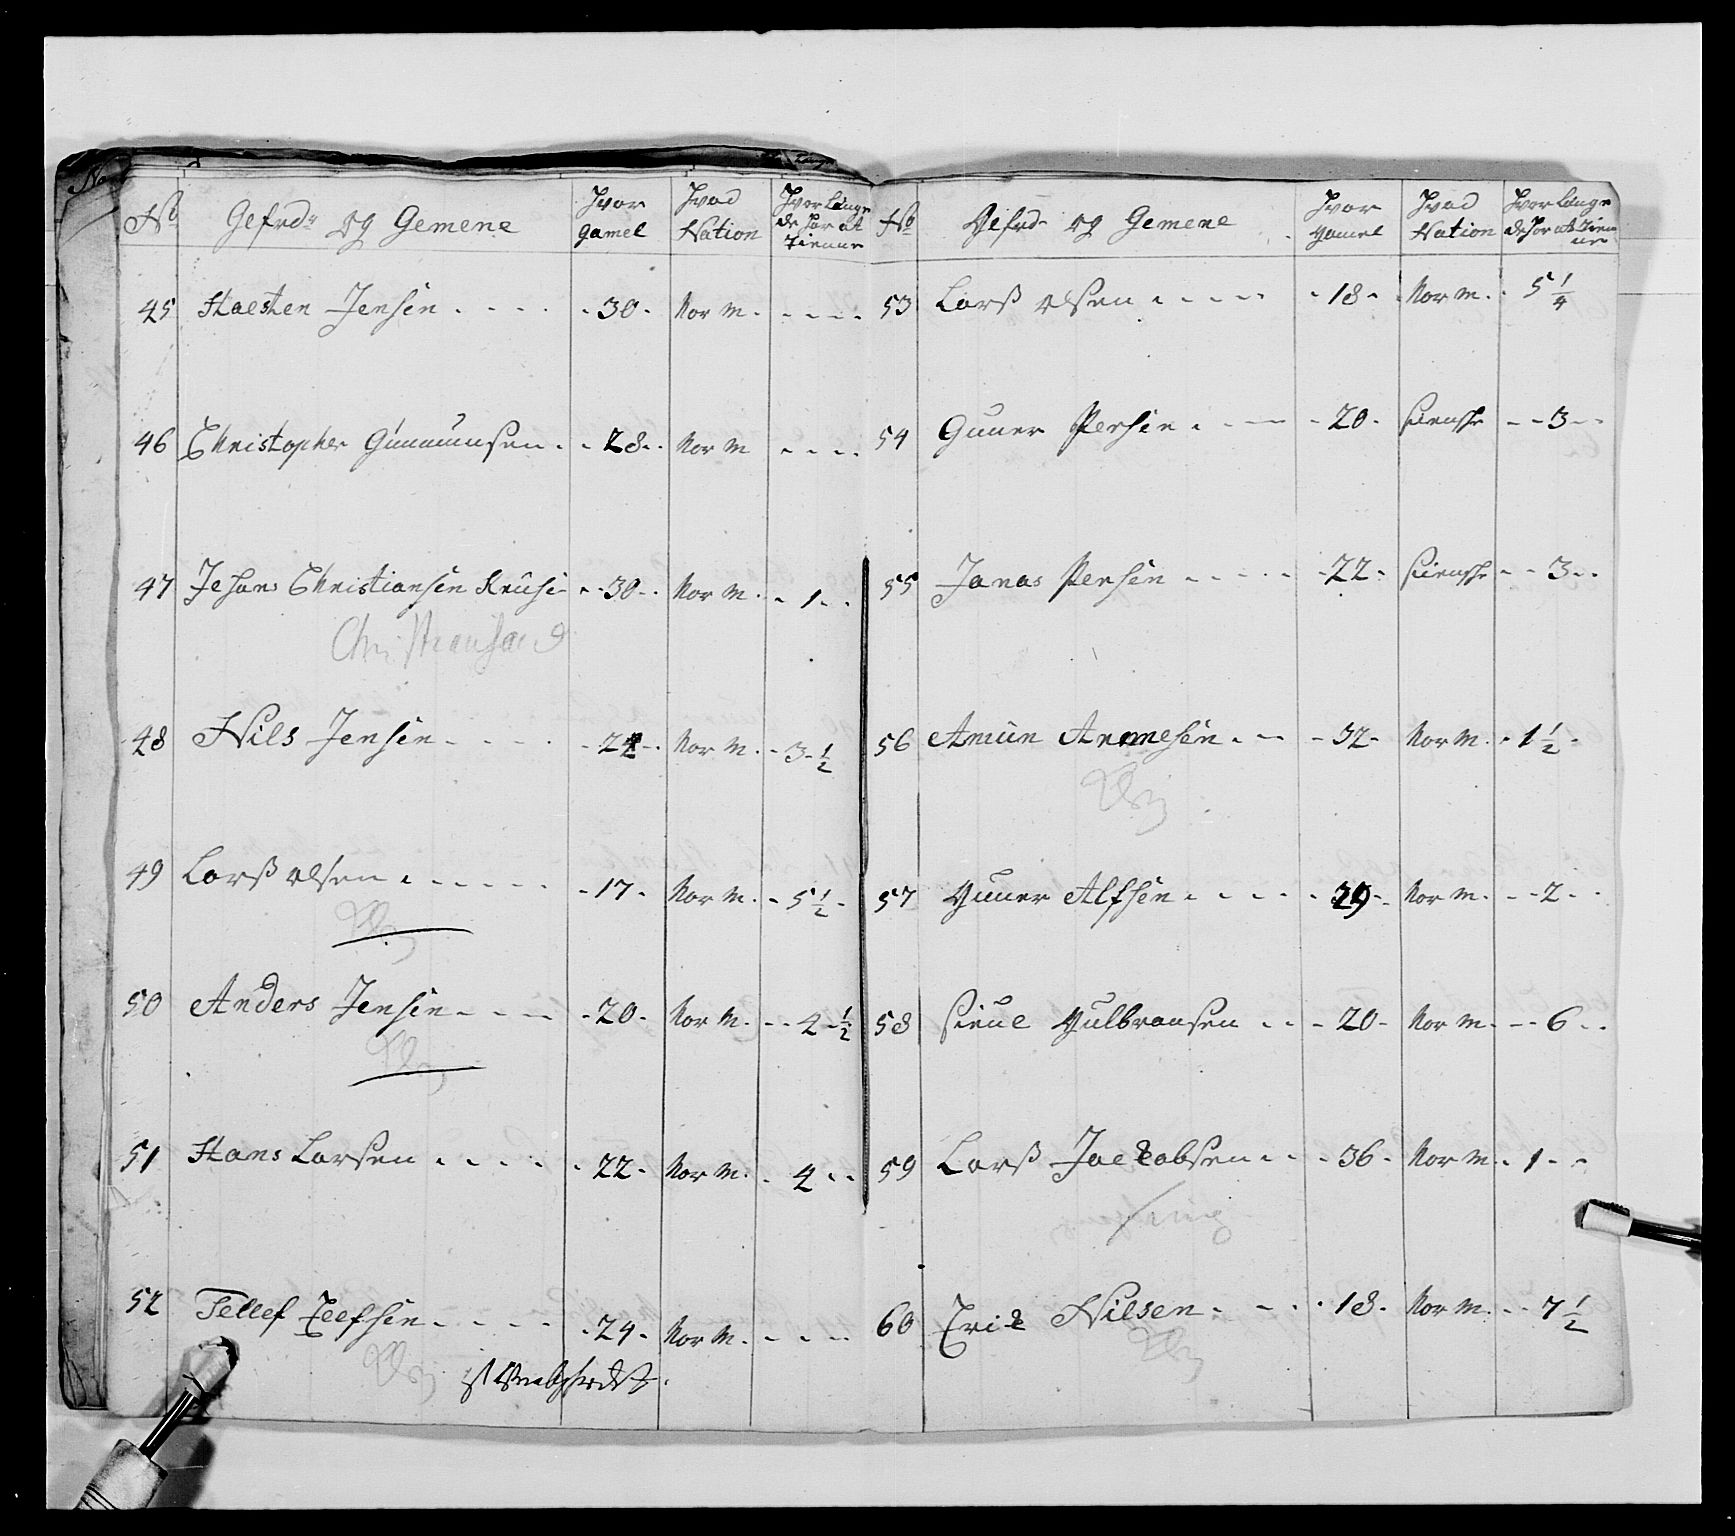 No Gefrdr og Gemene Hvor gamel Hvad Nation Hvor Länge de har at tienne
45 Haesten Jensen 30 Nor M.
46 Christopher Gunnuunsen 28 Nor M
47 Johans Christiansen Kruse 30 Nor M. 1
Christiansand
48 Nils Jensen 24 Nor M. 3 1/2
49 Lorß olsen 17 Nor M. 5 1/2
50 Anders Jensen 20 Nor M. 4 1/2
51 Hans Larsen 22 Nor M. 4
52 Tellef Eelfsen 24 Nor M.
No Gefrdr og Gemene Hvor gamel Hvad Nation Hvor Länge de har at tienne
53 Lorß olsen 18 Nor M. 5 1/4
54 Guner Persen 20 Siensk 3
55 Jonas Persen 22 Siensk 3
56 Amun Arnnesen 32 Nor M. 1 1/2
57 Guner Alfsen 29 Nor M. 2
58 Siene Gulbransen 20 Nor M. 6
59 Lorß Jaccobsen 36 Nor M. 1
60 Eric Nilsen 18 Nor M. 7 1/2